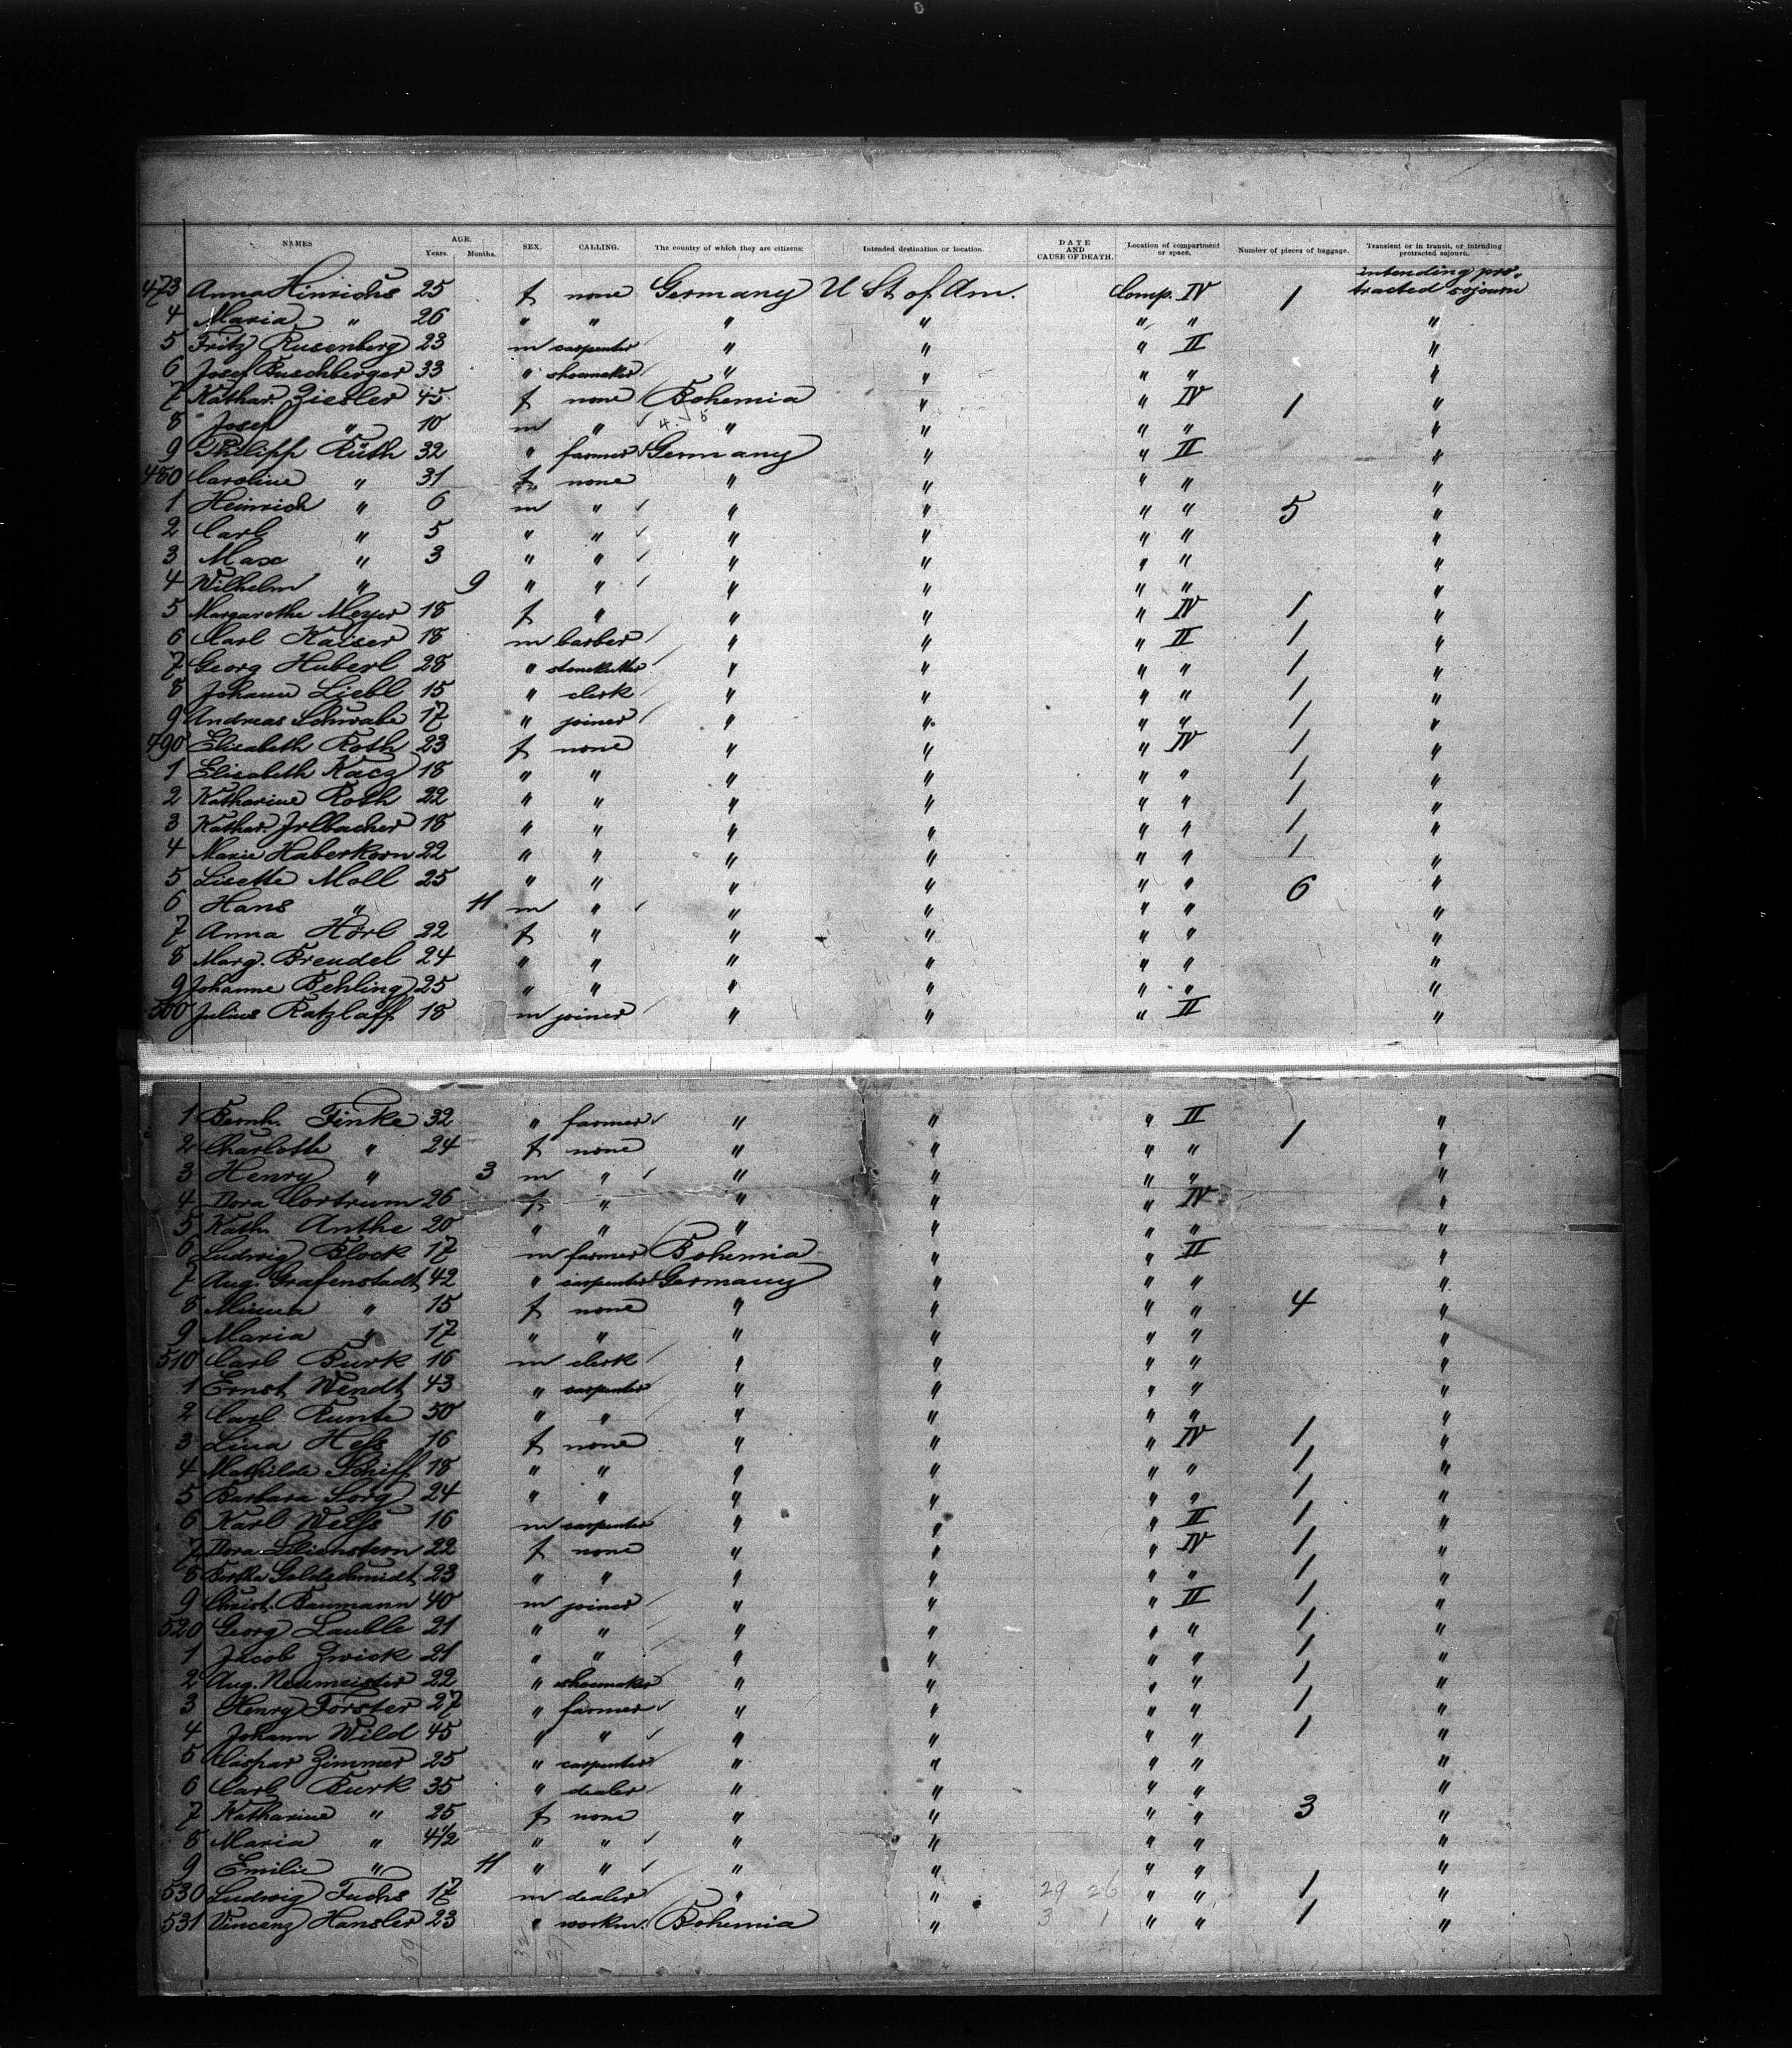 NAMES AGE. Years. Months. SEX. CALLING. The country of which they are citizens: Intended destination or location. DATE AND CAUSE OF DEATH. Location of compartment or space. Number of pieces of baggage. Transient or in transit, or intending protracted sojourn.
473 Anna Hinrichs 25 f none Germany U St of Am. Comp. IV 1 intending protracted sojourn
4 Maria " 26 " " " " " " "
5 Fritz Rusenberg 23 m carpenter " " " II "
6 Josef Buschberger 33 " shoemaker " " " " "
7 Kathar. Ziesler 45 f none Bohemia " " IV 1 "
8 Josef " 10 m " " " " " "
9 Philipp Rüth 32 " farmer Germany " " II "
480 Caroline " 31 f none " " " " "
1 Heinrich " 6 m " " " " " 5 "
2 Carl " 5 " " " " " " "
3 Max " 3 " " " " " " "
4 Wilhelm " 9 " " " " " " "
5 Margarethe Meyer 18 f " " " " IV 1 "
6 Carl Kaiser 18 m barber " " " II 1 "
7 Georg Huberl 28 " stonekutter " " " " 1 "
8 Johann Liebl 15 " clerk " " " " 1 "
9 Andreas Schwabe 17 " joiner " " " " 1 "
490 Elisabeth Roth 23 f none " " " IV 1 "
1 Elisabeth Kacz 18 " " " " " " 1 "
2 Katharine Roth 22 " " " " " " 1 "
3 Kathar. Irlbacher 18 " " " " " " 1 "
4 Marie Haberkorn 22 " " " " " " 1 "
5 Lisette Moll 25 " " " " " " 6 "
6 Hans " 11 m " " " " " "
7 Anna Hörl 22 f " " " " " "
8 Marg. Breudel 24 " " " " " " "
9 Johanne Behling 25 " " " " " " "
500 Julius Ratzlaff 18 m joiner " " " II "
1 Bernh. Finke 32 " farmer " " " II 1 "
2 Charlotte " 24 f none " " " " "
3 Henry " 3 m " " " " " "
4 Dora Cortrum 26 f " " " " IV "
5 Kath. Anthe 20 " " " " " " "
6 Ludwig Block 17 m farmer Bohemia " " II "
7 Aug. Grafenstadt 42 " carpenter Germany " " " "
8 Minna " 15 f none " " " " 4 "
9 Maria " 17 " " " " " " "
510 Carl Burk 16 m clerk " " " " "
1 Ernst Wendt 43 " carpenter " " " " "
2 Carl Runte 50 " " " " " " "
3 Lina Heß 16 f none " " " IV 1 "
4 Mathilde Schiff 18 " " " " " " 1 "
5 Barbara Sorg 24 " " " " " " 1 "
6 Karl Weiß 16 m carpenter " " " II 1 "
7 Dora Lilienstern 22 f none " " " IV 1 "
8 Bertha Goldschmidt 23 " " " " " " 1 "
9 Christ. Baumann 40 m joiner " " " II 1 "
520 Georg Lauble 21 " " " " " " 1 "
1 Jacob Zwick 21 " " " " " " 1 "
2 Aug. Neumeister 22 " shoemaker " " " " 1 "
3 Henry Forster 27 " farmer " " " " 1 "
4 Johann Wild 45 " " " " " " 1 "
5 Caspar Zimmer 25 " carpenter " " " " "
6 Carl Burk 35 " dealer " " " " "
7 Katharine " 25 f none " " " " 3 "
8 Maria " 4½ " " " " " " "
9 Emilie " 11 " " " " " " "
530 Ludwig Fuchs 17 m dealer " " 29 26 " " 1 "
531 Vincenz Hansler 23 " workm. Bohemia " 3 1 " " 1 "
59 32 27